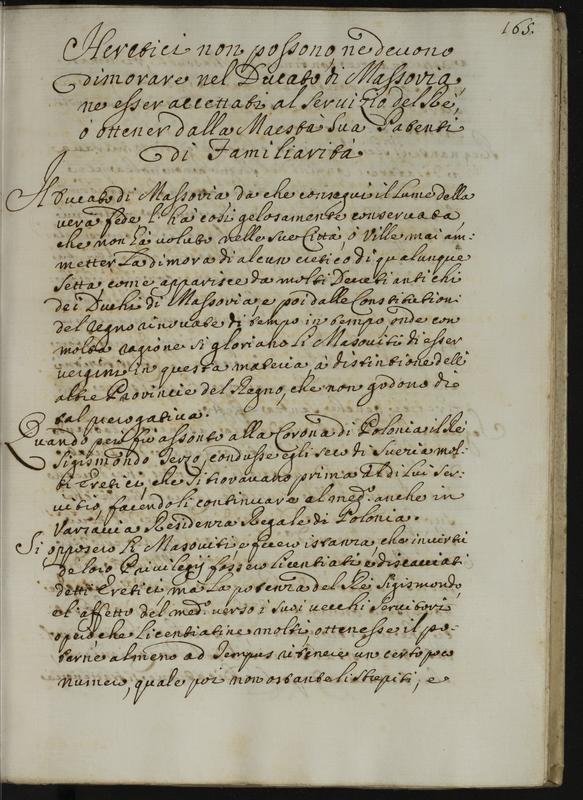 165.
Heretici non possono, ne devono
dimorare nel Ducato di Massovia,
ne esser accettati al servizio del Rè,
ò ottener dalla Maestà Sua Patenti
di Familiarità
Il Ducato di Massovia da che conseguì il lume della
vera fede l'ha così gelosamente conservata,
che non hà voluto nelle sue Città, ò Ville mai am:
metter la dimora di alcun eretico di qualunque
setta, come apparisce da molti Decreti antichi
dei Duchi di Massovia e poi dalle Constitutioni
del regno rinovate di tempo in tempo, onde con
molta ragione si gloriano li Masoviti di esser
vergini in questa materia, à distintione dell'
altre Provincie del Regno, che non godono di
tal prerogativa.
Quando però fù assonto alla Corona di Polonia il Rè
Sigismondo Terzo, condusse egli seco di Suezia mol-
ti Eretici, che si trovavano prima al di lui Ser-
vitio, facendoli continuare al med.º anche in
Varsavia Residenza Regale di Polonia.
Si opposero li Masoviti, e fecero istanza, che in virtù
de loro Privilegij fossero licentiati e discacciati
detti Eretici, ma la potenza del Rè Sigismondo,
e l'affetto del med.º verso i suoi vecchi servitori
operò, che licentiatine molti, ottenesse il po-
terne almeno ad tempus ritenere un certo poco
numero, quale poi non ostante li strepiti, e